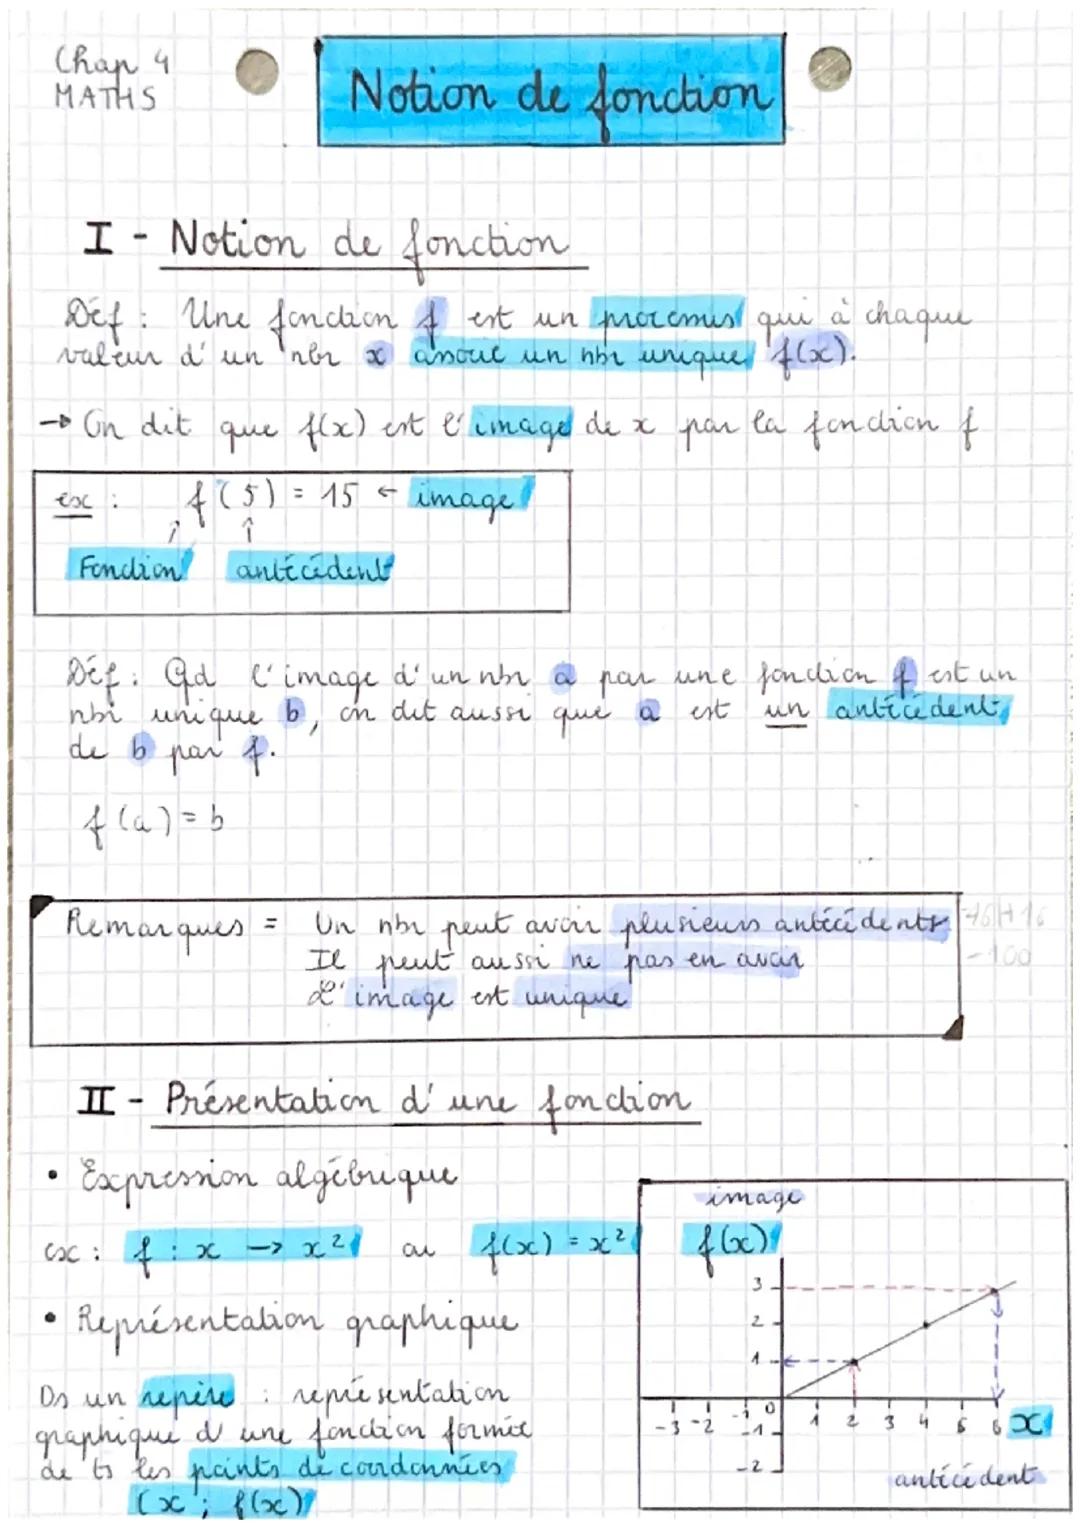 Chap 4
MATHS
Notion de fonction
I - Notion de fonction
Déf : Une fonction f est un processus qui à chaque
valeur d'un nbr x associe un nbr unique f(x).
→ On dit que f(x) est l'image de x par la fonction f
ex : f(5) = 15 ← image
↑ ↑
Fonction antécédent
Déf : Qd l'image d'un nbr a par une fonction f est un
nbr unique b, on dit aussi que a est un antécédent
de b par f.
f(a) = b
Remarques = Un nbr peut avoir plusieurs antécédents
Il peut aussi ne pas en avoir
L'image est unique
-100
II - Présentation d'une fonction
• Expression algébrique
ex : f : x → x² ou f(x) = x²
• Représentation graphique
Ds un repère : représentation
graphique d'une fonction formée
de ts les points de coordonnées
(x ; f(x))
image
f(x)
3
2
1
-3 -2 -1 0 1 2 3 4 5 6 x
-1
-2
antécédent